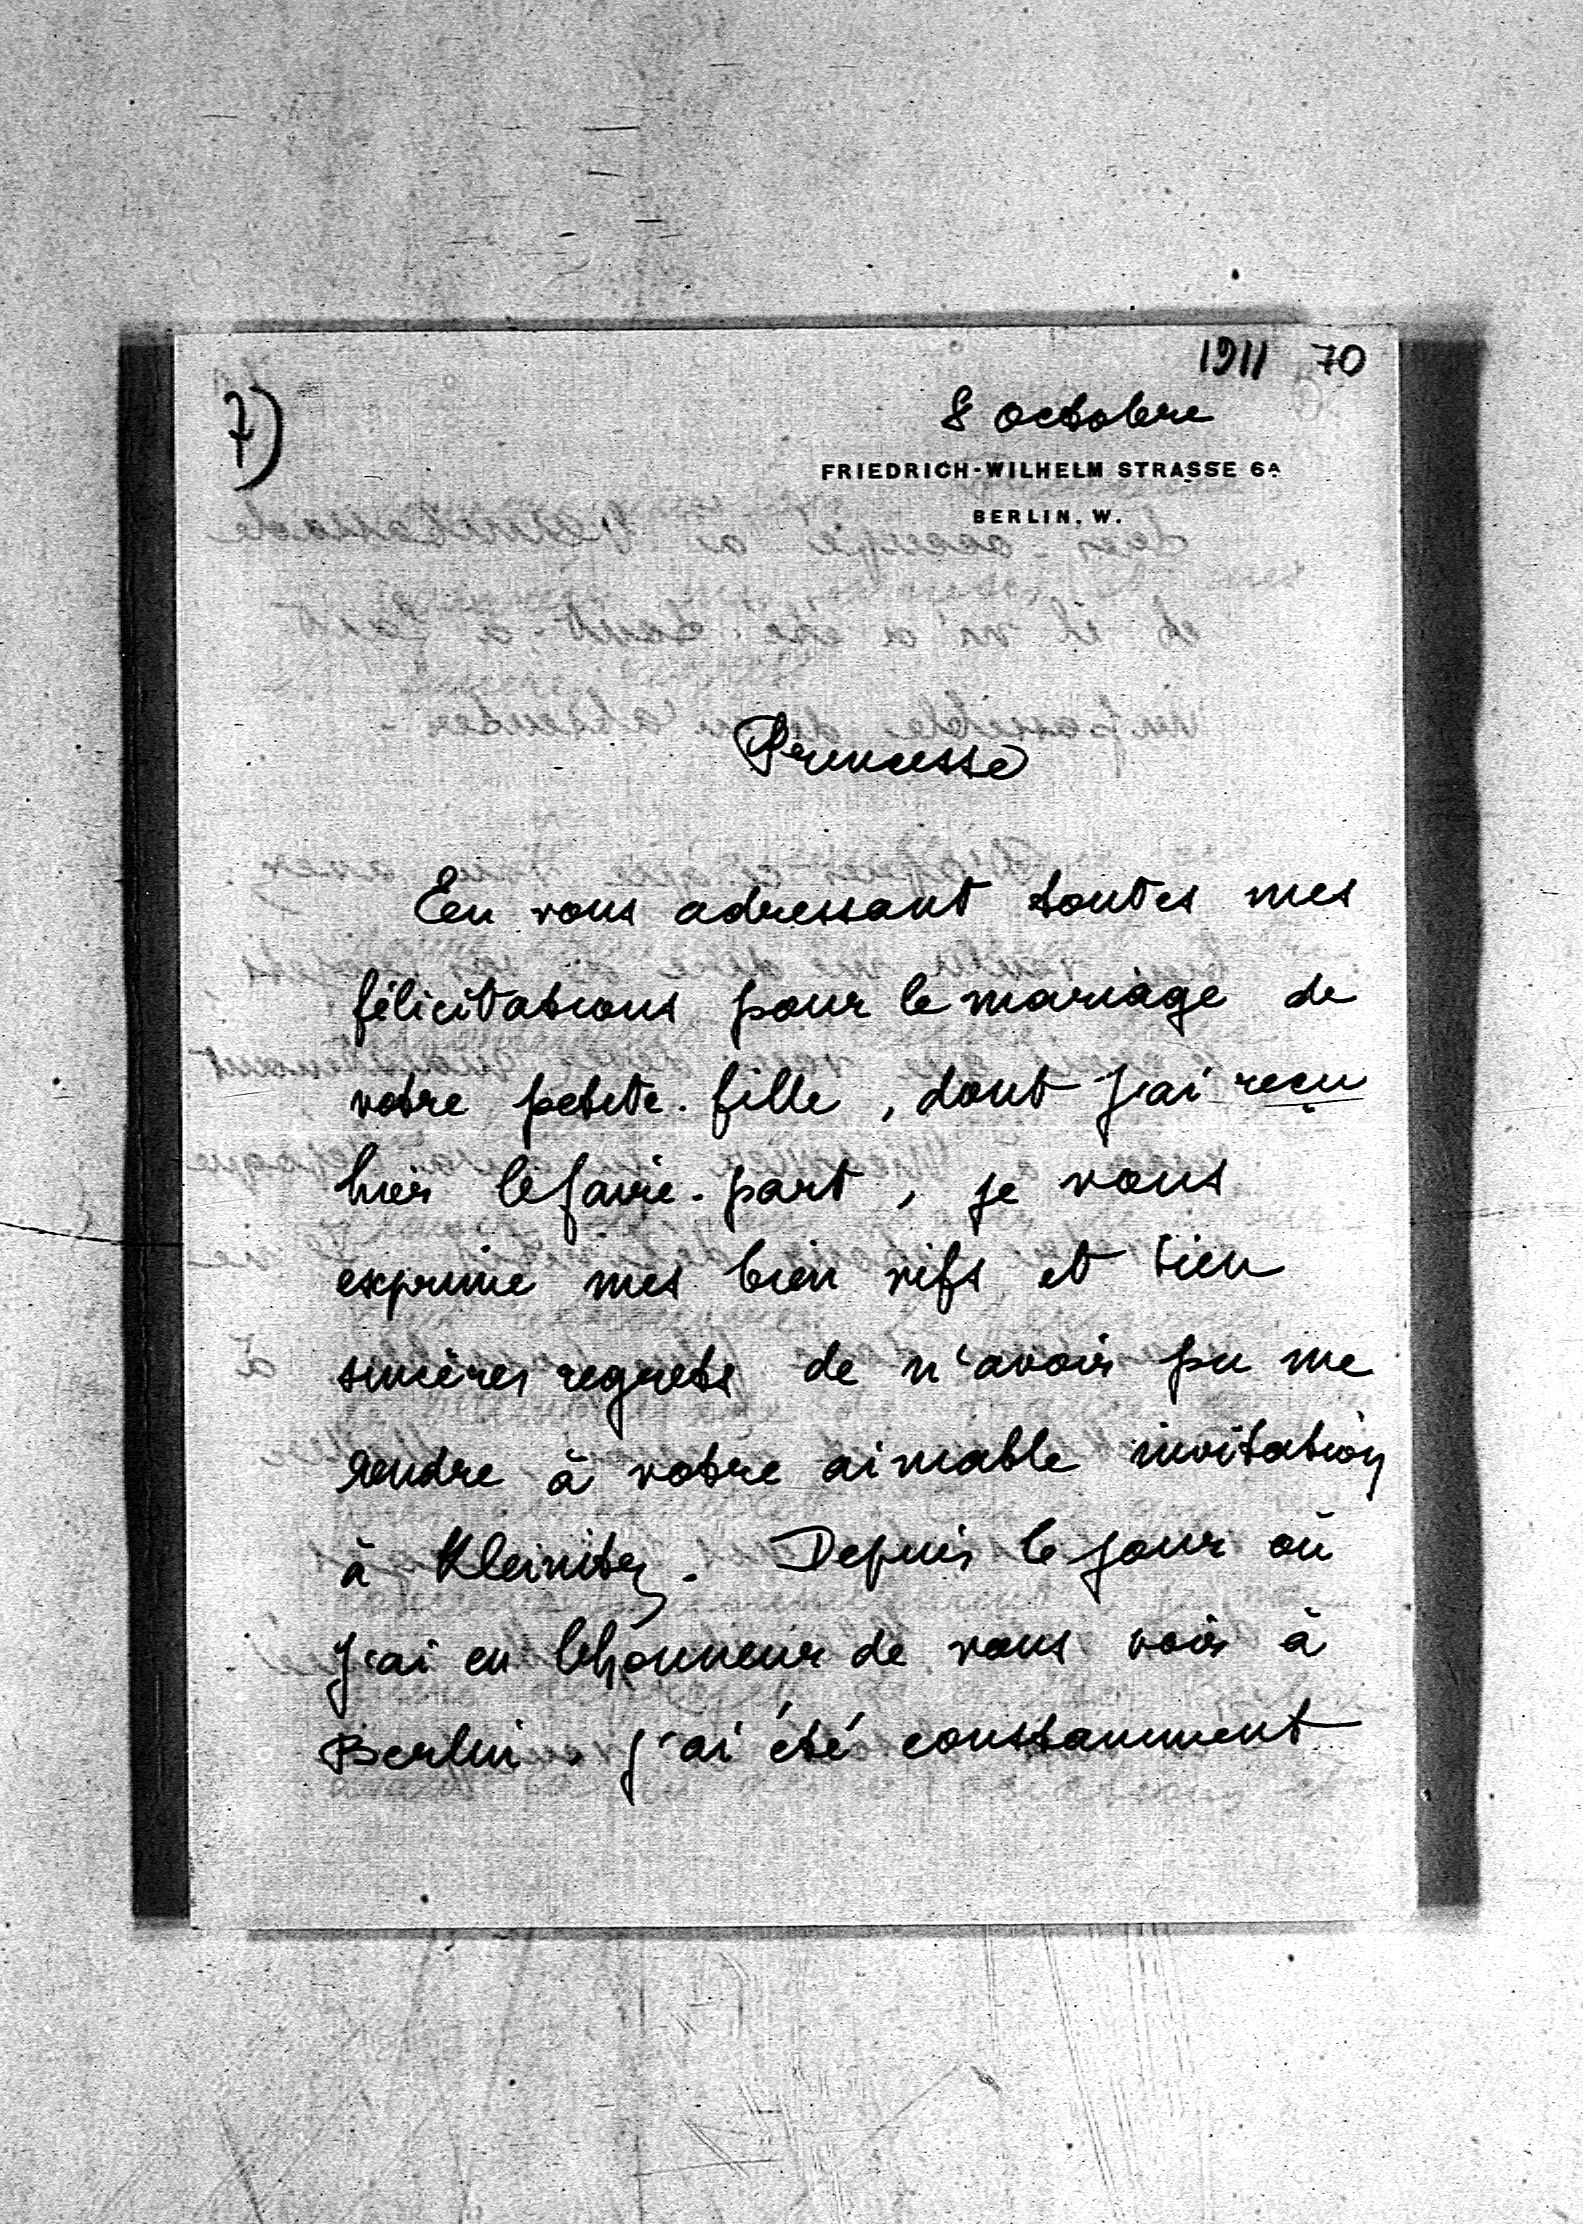 1911 70
7)
8 octobre
FRIEDRICH-WILHELM STRASSE 6A
BERLIN. W.
Princesse
En vous adressant toutes mes
félicitations pour le mariage de
votre petite-fille, dont j'ai reçu
hier le faire-part, je vous
exprime mes bien vifs et bien
sincères regrets de n'avoir pu me
rendre à votre aimable invitation
à Kleinitz. Depuis le jour où
j'ai eu l'honneur de vous voir à
Berlin, j'ai été constamment